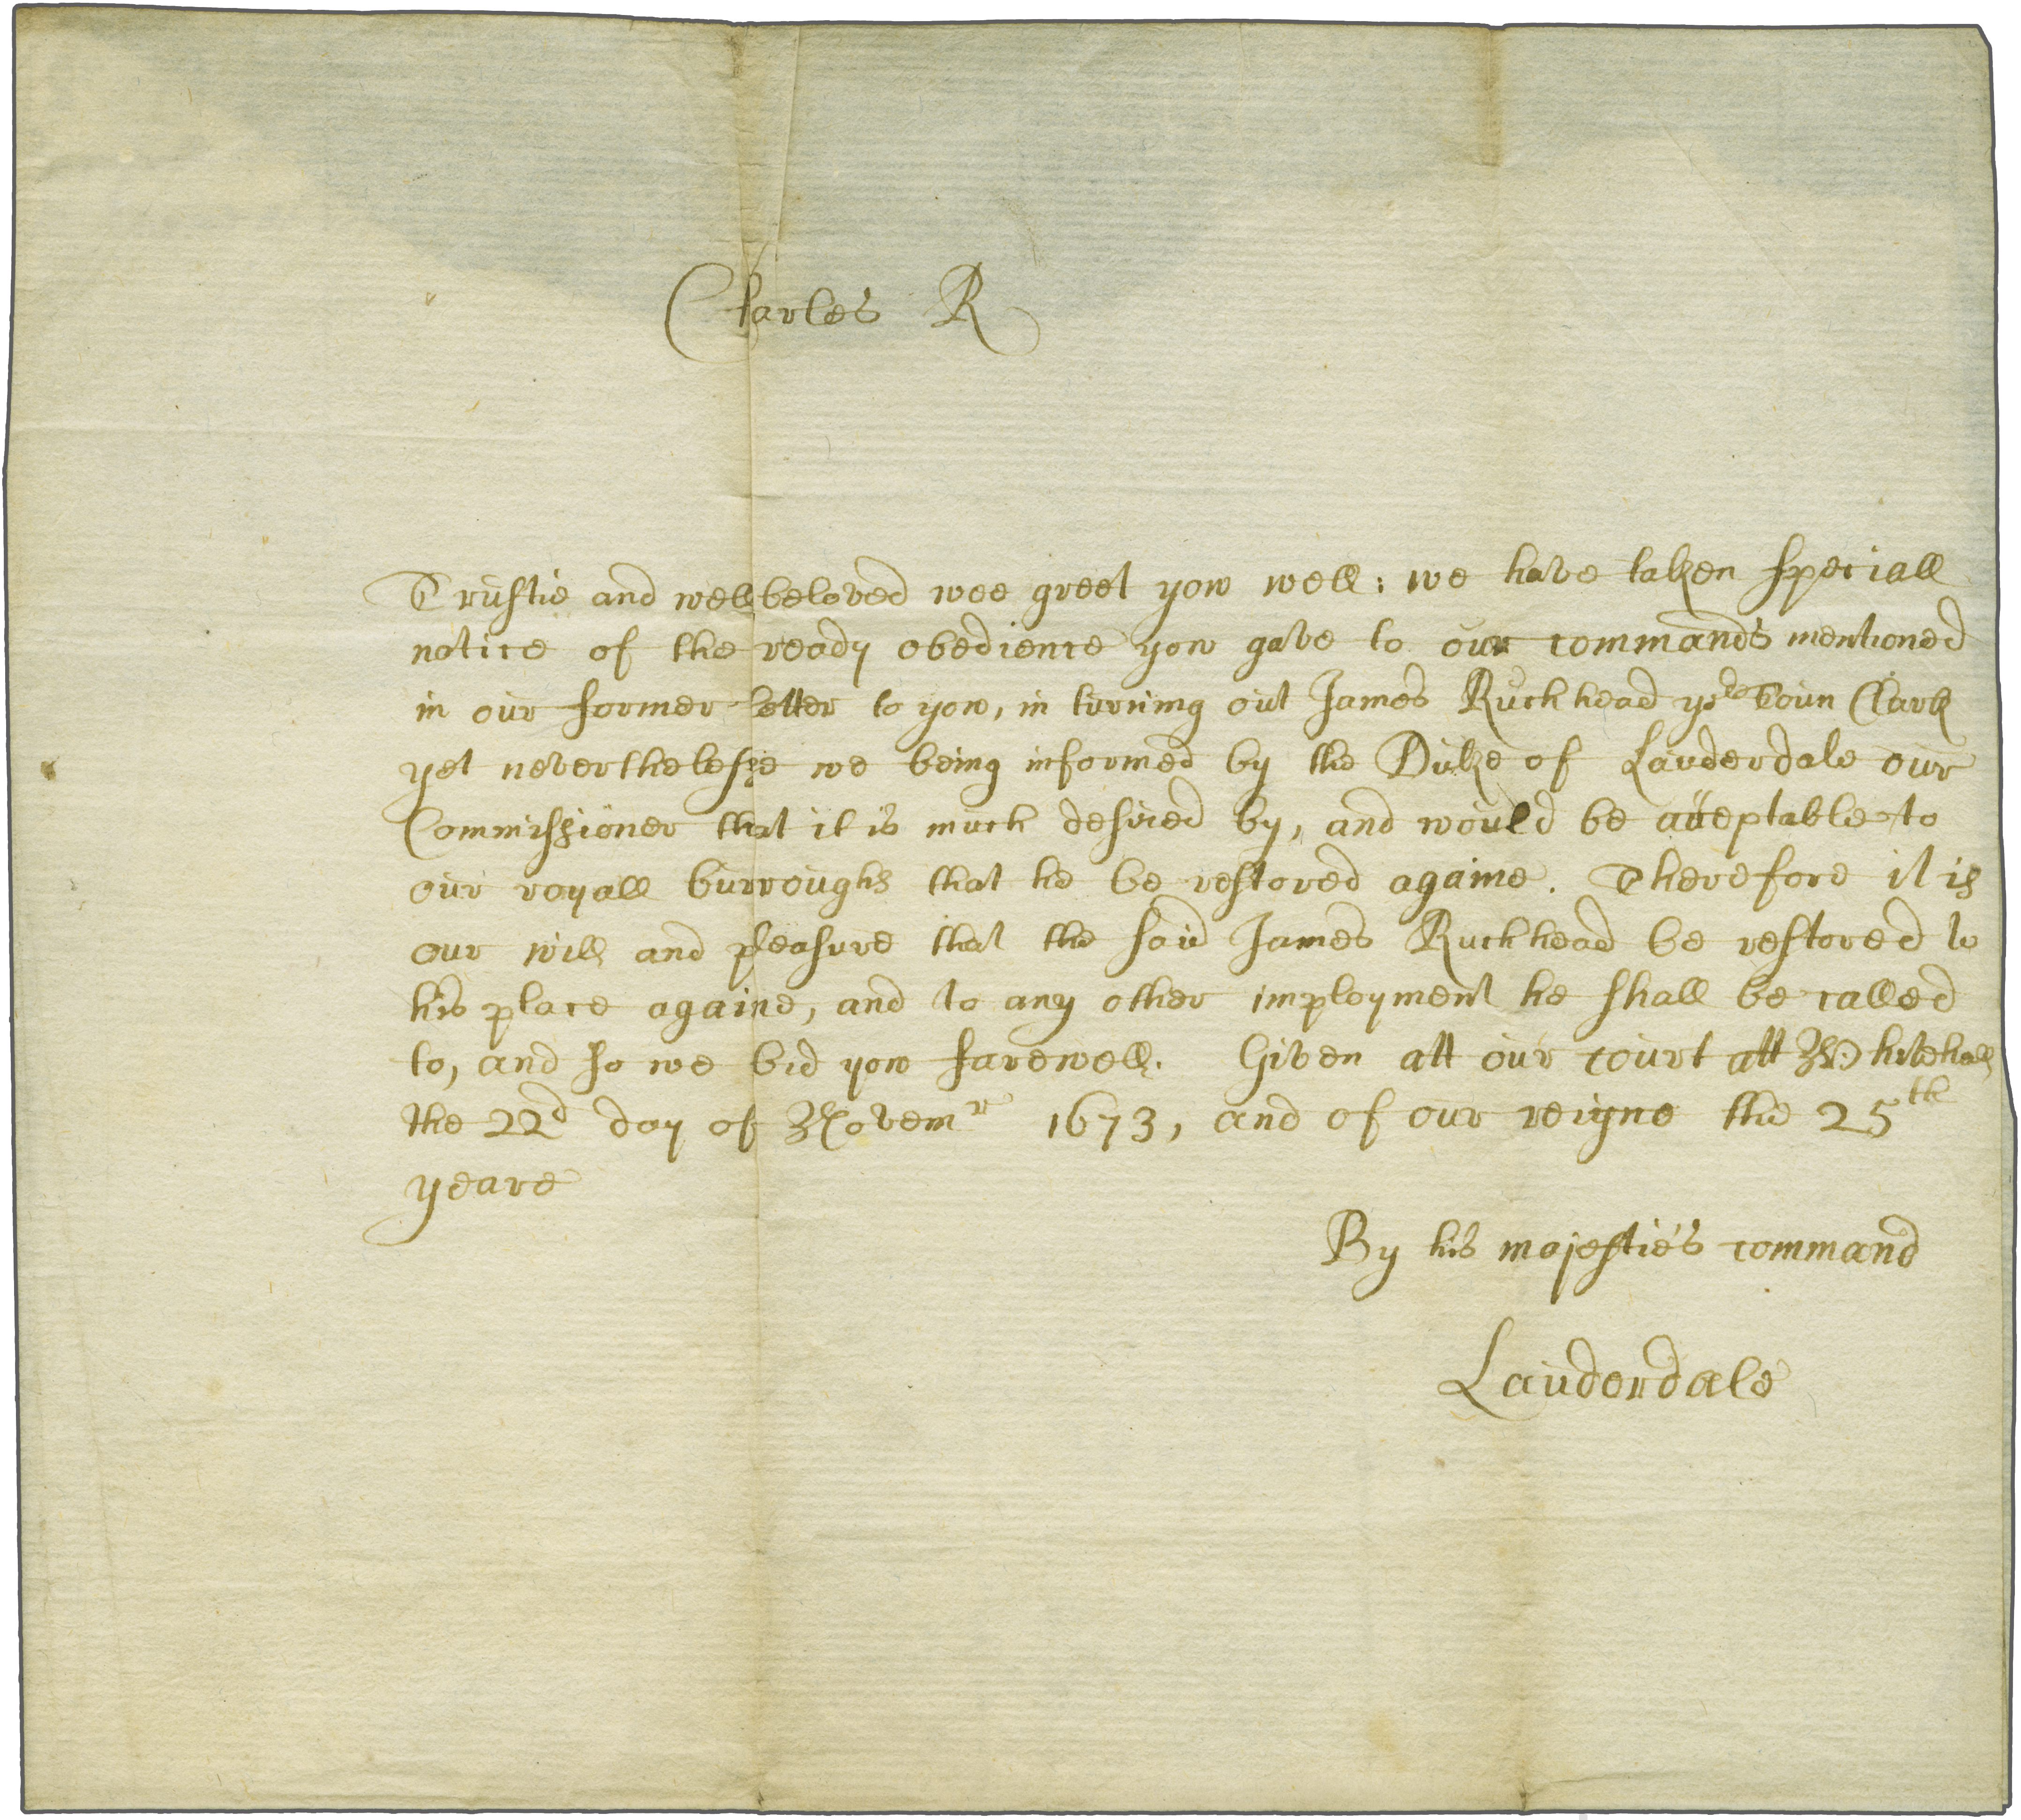 Charles R
Trustie and wellbeloved wee greet yow well: we have taken speciall
notice of the ready obedience yow gave to our commands mentioned
in our former letter to yow, in turning out James Ruchhead Toun Clark
yet neverthelesse we being informed by the Duke of Lauderdale our
Commissioner that it is much desired by, and would be acceptable to
our royall burroughs that he be restored againe. Therefore it is
our will and pleasure that the said James Ruchhead be restored to
his place againe, and to any other imployment he shall be called
to, and so we bid yow farewell. Given att our court att Whitehall
the 22d day of Novemr 1673, and of our reigne the 25th
yeare
By his majestie's command
Lauderdale